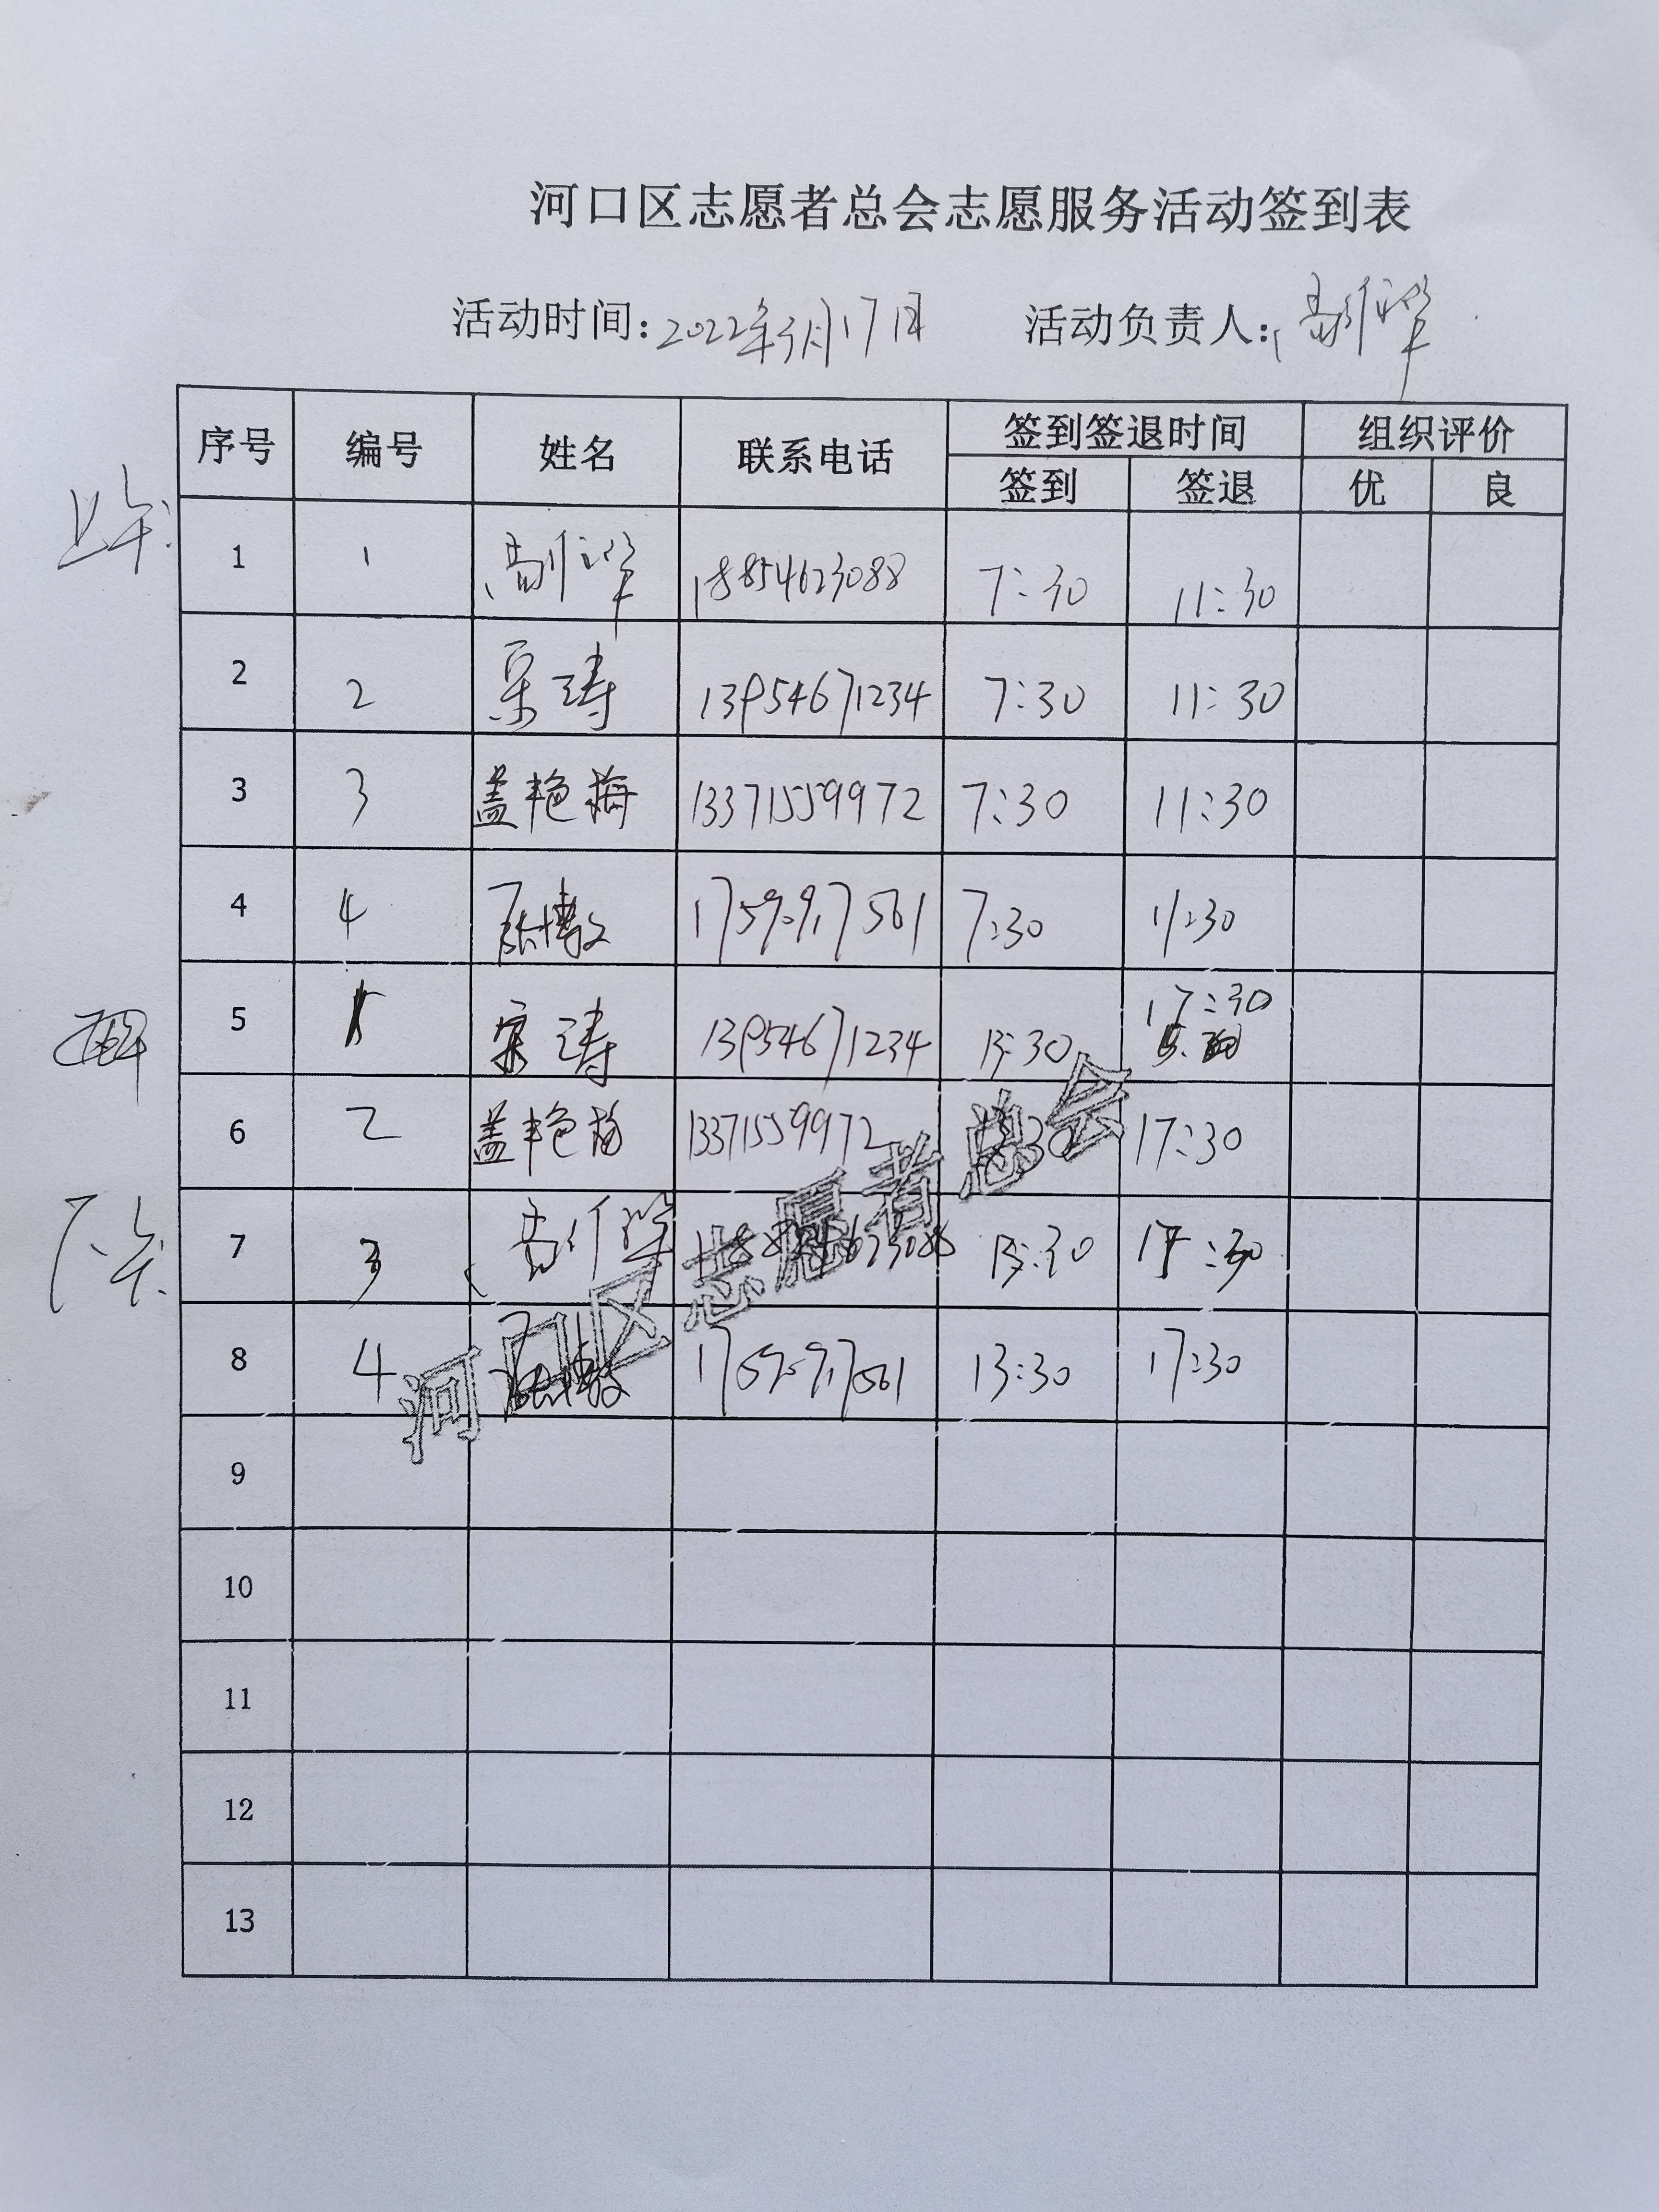 河口区志愿者总会志愿服务活动签到表
活动时间：2022年3月17日 活动负责人：
序号 编号 姓名 联系电话 签到签退时间 组织评价
签到 签退 优 良
上午：
1 1 18854623088 7:30 11:30
2 2 宋涛 13954671234 7:30 11:30
3 3 盖艳梅 13371559972 7:30 11:30
4 4 张博文 7:30 11:30
5 宋涛 13954671234 13:30 17:30
6 2 盖艳梅 13371559972 17:30
下午：
7 3 13:30 17:30
8 4 13:30 17:30
9
10
11
12
13
河口区志愿者总会